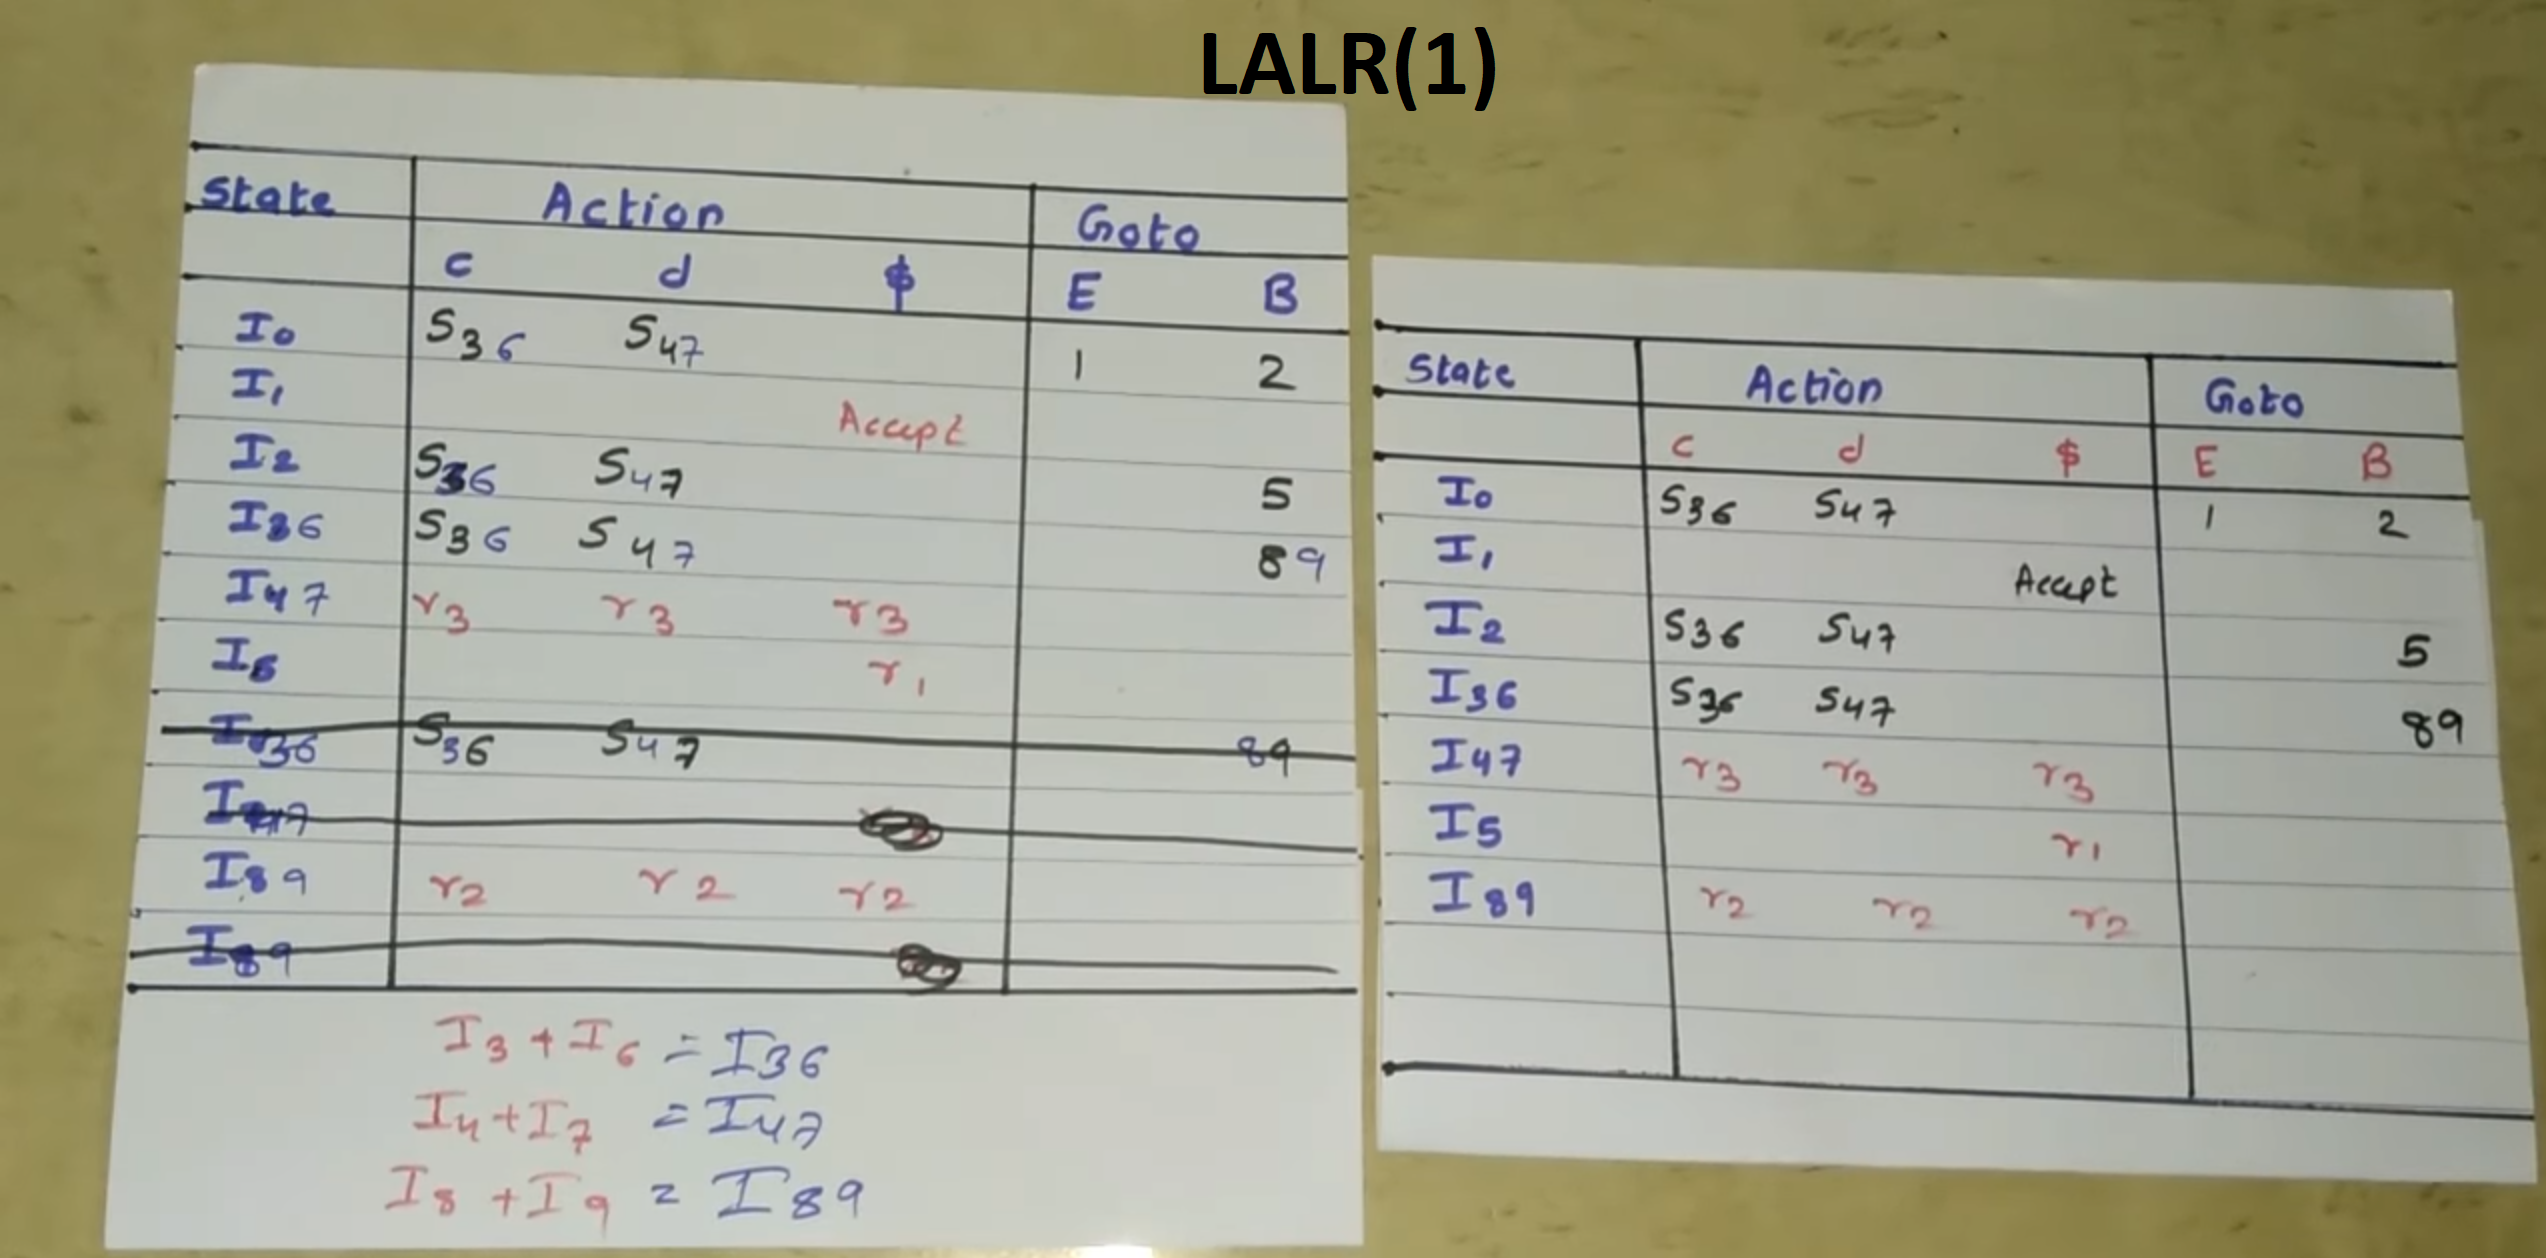 LALR(1)
State Action Goto
c d $ E B
I0 S36 S47 1 2
I1 Accept
I2 S36 S47 5
I36 S36 S47 89
I47 r3 r3 r3
I5 r1
I36 S36 S47 89
I47
I89 r2 r2 r2
I89
I3 + I6 = I36
I4 + I7 = I47
I8 + I9 = I89
State Action Goto
c d $ E B
I0 S36 S47 1 2
I1 Accept
I2 S36 S47 5
I36 S36 S47 89
I47 r3 r3 r3
I5 r1
I89 r2 r2 r2